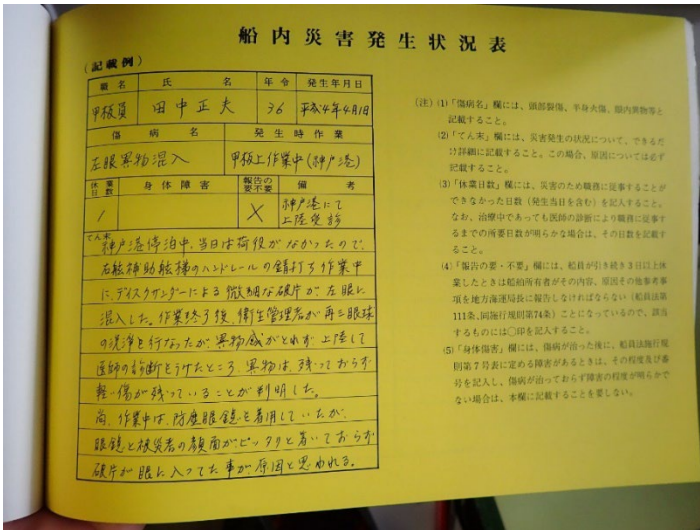 船内災害発生状況表
(記載例)
職名 氏名 年令 発生年月日
甲板員 田中正夫 36 平成4年4月1日
傷病名 発生時作業
左眼異物混入 甲板上作業中(神戸港)
休業日数 身体障害 報告の要不要 備考
1 × 神戸港にて上陸受診
てん末
神戸港停泊中、当日は荷役がなかったので、
右舷補助舷梯のハンドレールの錆打ち作業中
に、ディスクサンダーによる微細な破片が左眼に
混入した。作業終了後、衛生管理者が再三眼球
の洗浄を行なったが異物感がとれず上陸して
医師の診断をうけたところ、異物は、残っておらず
軽い傷が残っていることが判明した。
尚、作業中は、防塵眼鏡を着用していたが、
眼鏡と被災者の顔面がピッタリと着いておらず
破片が眼に入ってた事が原因と思われる。
(注) (1)「傷病名」欄には、頭部裂傷、半身火傷、眼内異物等と
記載すること。
(2)「てん末」欄には、災害発生の状況について、できるだ
け詳細に記載すること。この場合、原因については必ず
記載すること。
(3)「休業日数」欄には、災害のため職務に従事することが
できなかった日数(発生当日を含む)を記入すること。
なお、治療中であっても医師の診断により職務に従事す
るまでの所要日数が明らかな場合は、その日数を記載す
ること。
(4)「報告の要・不要」欄には、船員が引き続き3日以上休
業したときは船舶所有者がその内容、原因その他参考事
項を地方海運局長に報告しなければならない(船員法第
111条、同施行規則第74条)ことになっているので、該当
するものには○印を記入すること。
(5)「身体傷害」欄には、傷病が治った後に、船員法施行規
則第7号表に定める障害があるときは、その程度及び番
号を記入し、傷病が治っておらず障害の程度が明らかで
ない場合は、本欄に記載することを要しない。